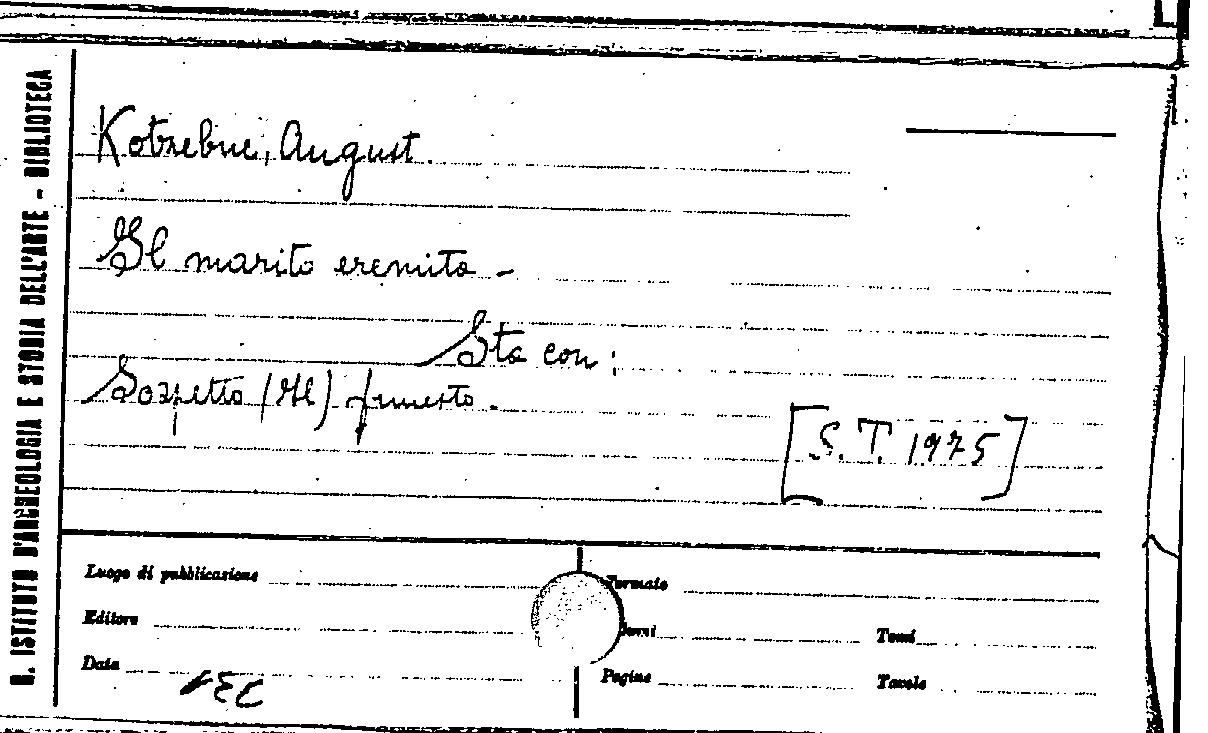 R. ISTITUTO D'ARCHEOLOGIA E STORIA DELL'ARTE - BIBLIOTECA
Kotzebue, August.
Il marito eremita -
Sta con:
Sospetto (Il) funesto.
[S. T. 1975]
Luogo di pubblicazione
Formato
Editore
Tomi
Data
Pagine
Tavole